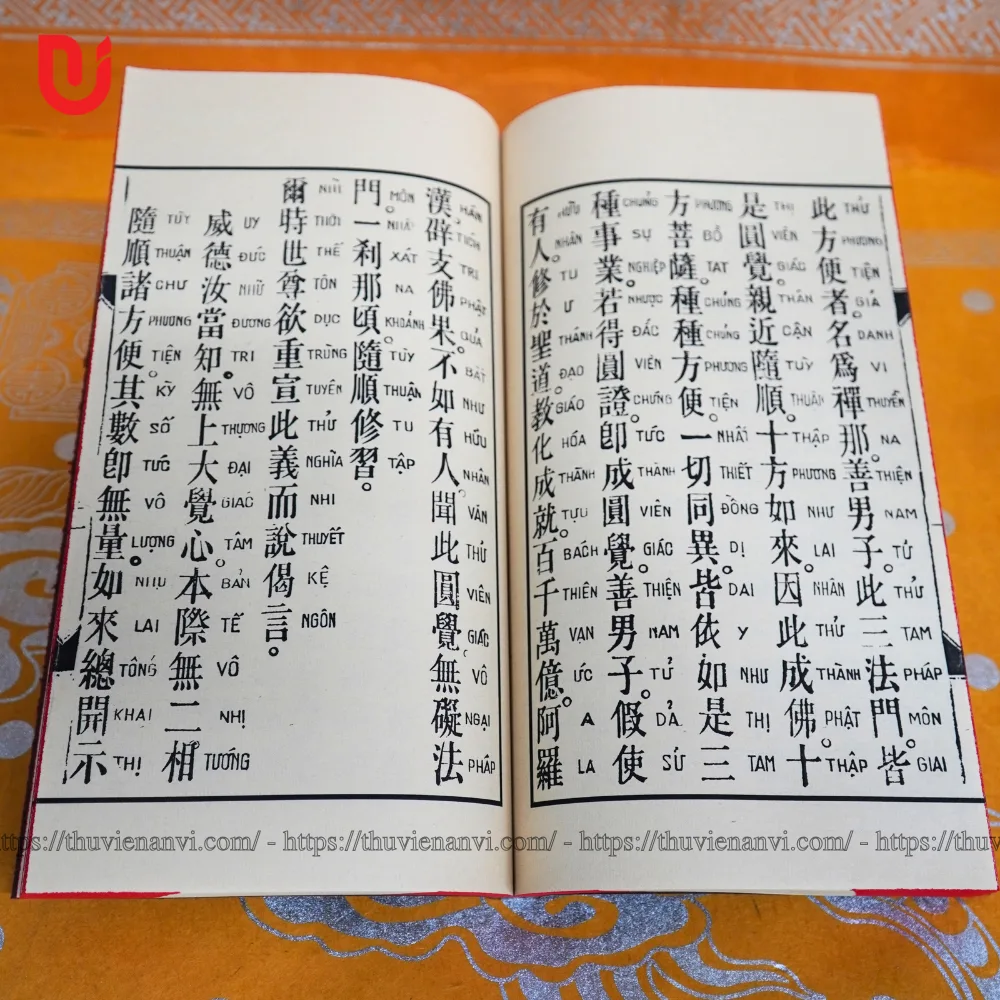 此方便者。名爲禪那。善男子。此三法門。皆
THỬ PHƯƠNG TIỆN GIẢ DANH VI THUYỀN NA THIỆN NAM TỬ THỬ TAM PHÁP MÔN GIAI
是圓覺。親近隨順。十方如來。因此成佛。十
THỊ VIÊN GIÁC THÂN CẬN TÙY THUẬN THẬP PHƯƠNG NHƯ LAI NHÂN THỬ THÀNH PHẬT THẬP
方菩薩。種種方便。一切同異。皆依如是三
PHƯƠNG BỒ TAT CHỦNG CHỦNG PHƯƠNG TIỆN NHẤT THIẾT ĐỒNG DỊ DAI Y NHƯ THỊ TAM
種事業。若得圓證。卽成圓覺。善男子。假使
CHỦNG SỰ NGHIỆP NHƯỢC ĐẮC VIÊN CHỨNG TỨC THÀNH VIÊN GIÁC THIỆN NAM TỬ DẢ SỨ
有人。修於聖道。教化成就。百千萬億。阿羅
HỮU NHÂN TU Ư THÁNH ĐẠO GIÁO HÓA THÀNH TỰU BÁCH THIÊN VẠN ỨC A LA
漢。辟支佛果。不如有人。聞此圓覺。無礙法
HÁN TÍCH TRI PHẬT QUẢ BẤT NHƯ HỮU NHÂN VĂN THỬ VIÊN GIÁC VÔ NGẠI PHÁP
門。一刹那頃。隨順修習。
MÔN NHẤT XÁT NA KHOẢNH TÙY THUẬN TU TẬP
爾時世尊欲重宣此義而說偈言。
NHĨ THỜI THẾ TÔN DỤC TRÙNG TUYÊN THỬ NGHĨA NHI THUYẾT KỆ NGÔN
威德汝當知。無上大覺心。本際無二相
UY ĐỨC NHỮ ĐƯƠNG TRI VÔ THƯỢNG ĐẠI GIÁC TÂM BẢN TẾ VÔ NHỊ TƯỚNG
隨順諸方便。其數卽無量。如來總開示
TÙY THUẬN CHƯ PHƯƠNG TIỆN KỲ SỐ TỨC VÔ LƯỢNG NHƯ LAI TỔNG KHAI THỊ
https://thuvienanvi.com/ - https://thuvienanvi.com/ - https://thuvienanvi.com/ - https://thuvienanvi.com/